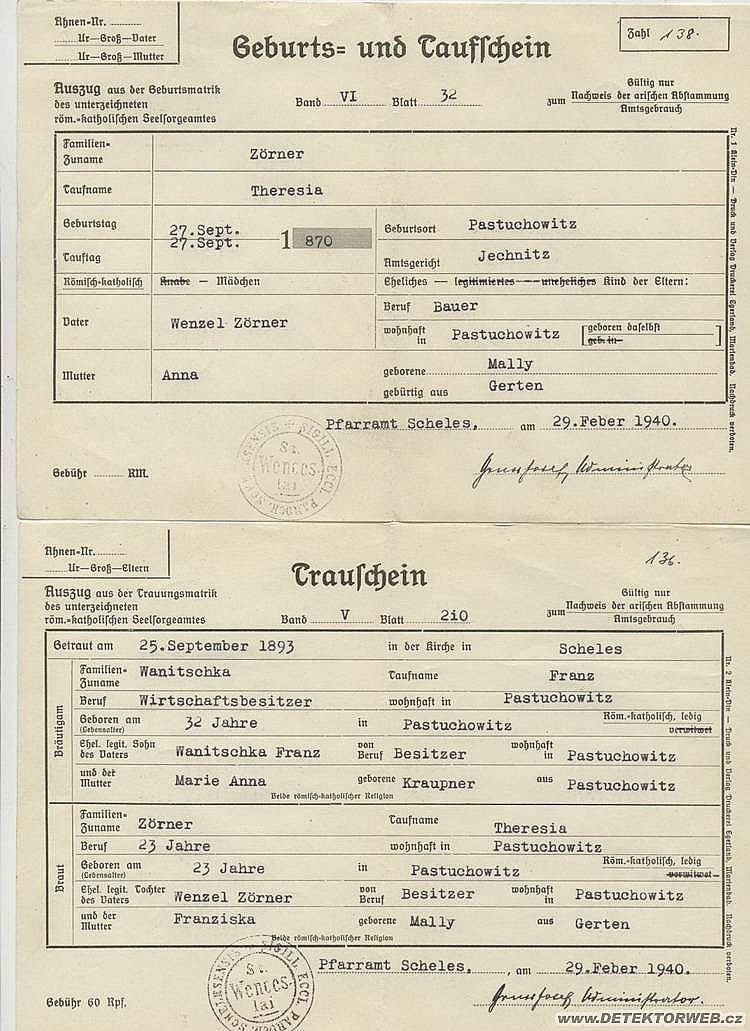 Ahnen-Nr. ..........
........Ur—Groß—Vater
........Ur—Groß—Mutter
Geburts= und Taufschein
Zahl 138.
Auszug aus der Geburtsmatrik
des unterzeichneten
röm.=katholischen Seelsorgeamtes
Band VI Blatt 32
Gültig nur
zum Nachweis der arischen Abstammung
Amtsgebrauch
Familien-
Zuname Zörner
Taufname Theresia
Geburtstag 27.Sept.
Tauftag 27.Sept. 1 870
Geburtsort Pastuchowitz
Amtsgericht Jechnitz
Römisch=katholisch Knabe — Mädchen
Eheliches — legitimiertes — uneheliches Kind der Eltern:
Vater Wenzel Zörner
Beruf Bauer
wohnhaft in Pastuchowitz [geboren daselbst
geb. in ]
Mutter Anna
geborene Mally
gebürtig aus Gerten
Pfarramt Scheles, am 29.Feber 1940.
SIGILL. ECCL. PAROCH. SCHELESENSIS
St.
Wences-
lai
Administrator
Gebühr ........ RM.
Nr. 1 Klein-Din — Druck und Verlag Druckerei Egerland, Marienbad. Nachdruck verboten.
Ahnen-Nr. ..........
........Ur—Groß—Eltern
Trauschein
136.
Auszug aus der Trauungsmatrik
des unterzeichneten
röm.=katholischen Seelsorgeamtes
Band V Blatt 2i0
Gültig nur
zum Nachweis der arischen Abstammung
Amtsgebrauch
Getraut am 25.September 1893 in der Kirche in Scheles
Bräutigam
Familien-
Zuname Wanitschka Taufname Franz
Beruf Wirtschaftsbesitzer wohnhaft in Pastuchowitz
Geboren am
(Lebensalter) 32 Jahre in Pastuchowitz Röm.=katholisch, ledig
verwitwet
Ehel. legit. Sohn
des Vaters Wanitschka Franz von Beruf Besitzer wohnhaft in Pastuchowitz
und der
Mutter Marie Anna geborene Kraupner aus Pastuchowitz
Beide römisch=katholischer Religion
Braut
Familien-
Zuname Zörner Taufname Theresia
Beruf 23 Jahre wohnhaft in Pastuchowitz
Geboren am
(Lebensalter) 23 Jahre in Pastuchowitz Röm.=katholisch, ledig
verwitwet
Ehel. legit. Tochter
des Vaters Wenzel Zörner von Beruf Besitzer wohnhaft in Pastuchowitz
und der
Mutter Franziska geborene Mally aus Gerten
Beide römisch=katholischer Religion
Pfarramt Scheles, , am 29.Feber 1940.
SIGILL. ECCL. PAROCH. SCHELESENSIS
St.
Wences-
lai
Administrator.
Gebühr 60 Rpf.
Nr. 2 Klein-Din — Druck und Verlag Druckerei Egerland, Marienbad. Nachdruck verboten.
www.DETEKTORWEB.cz